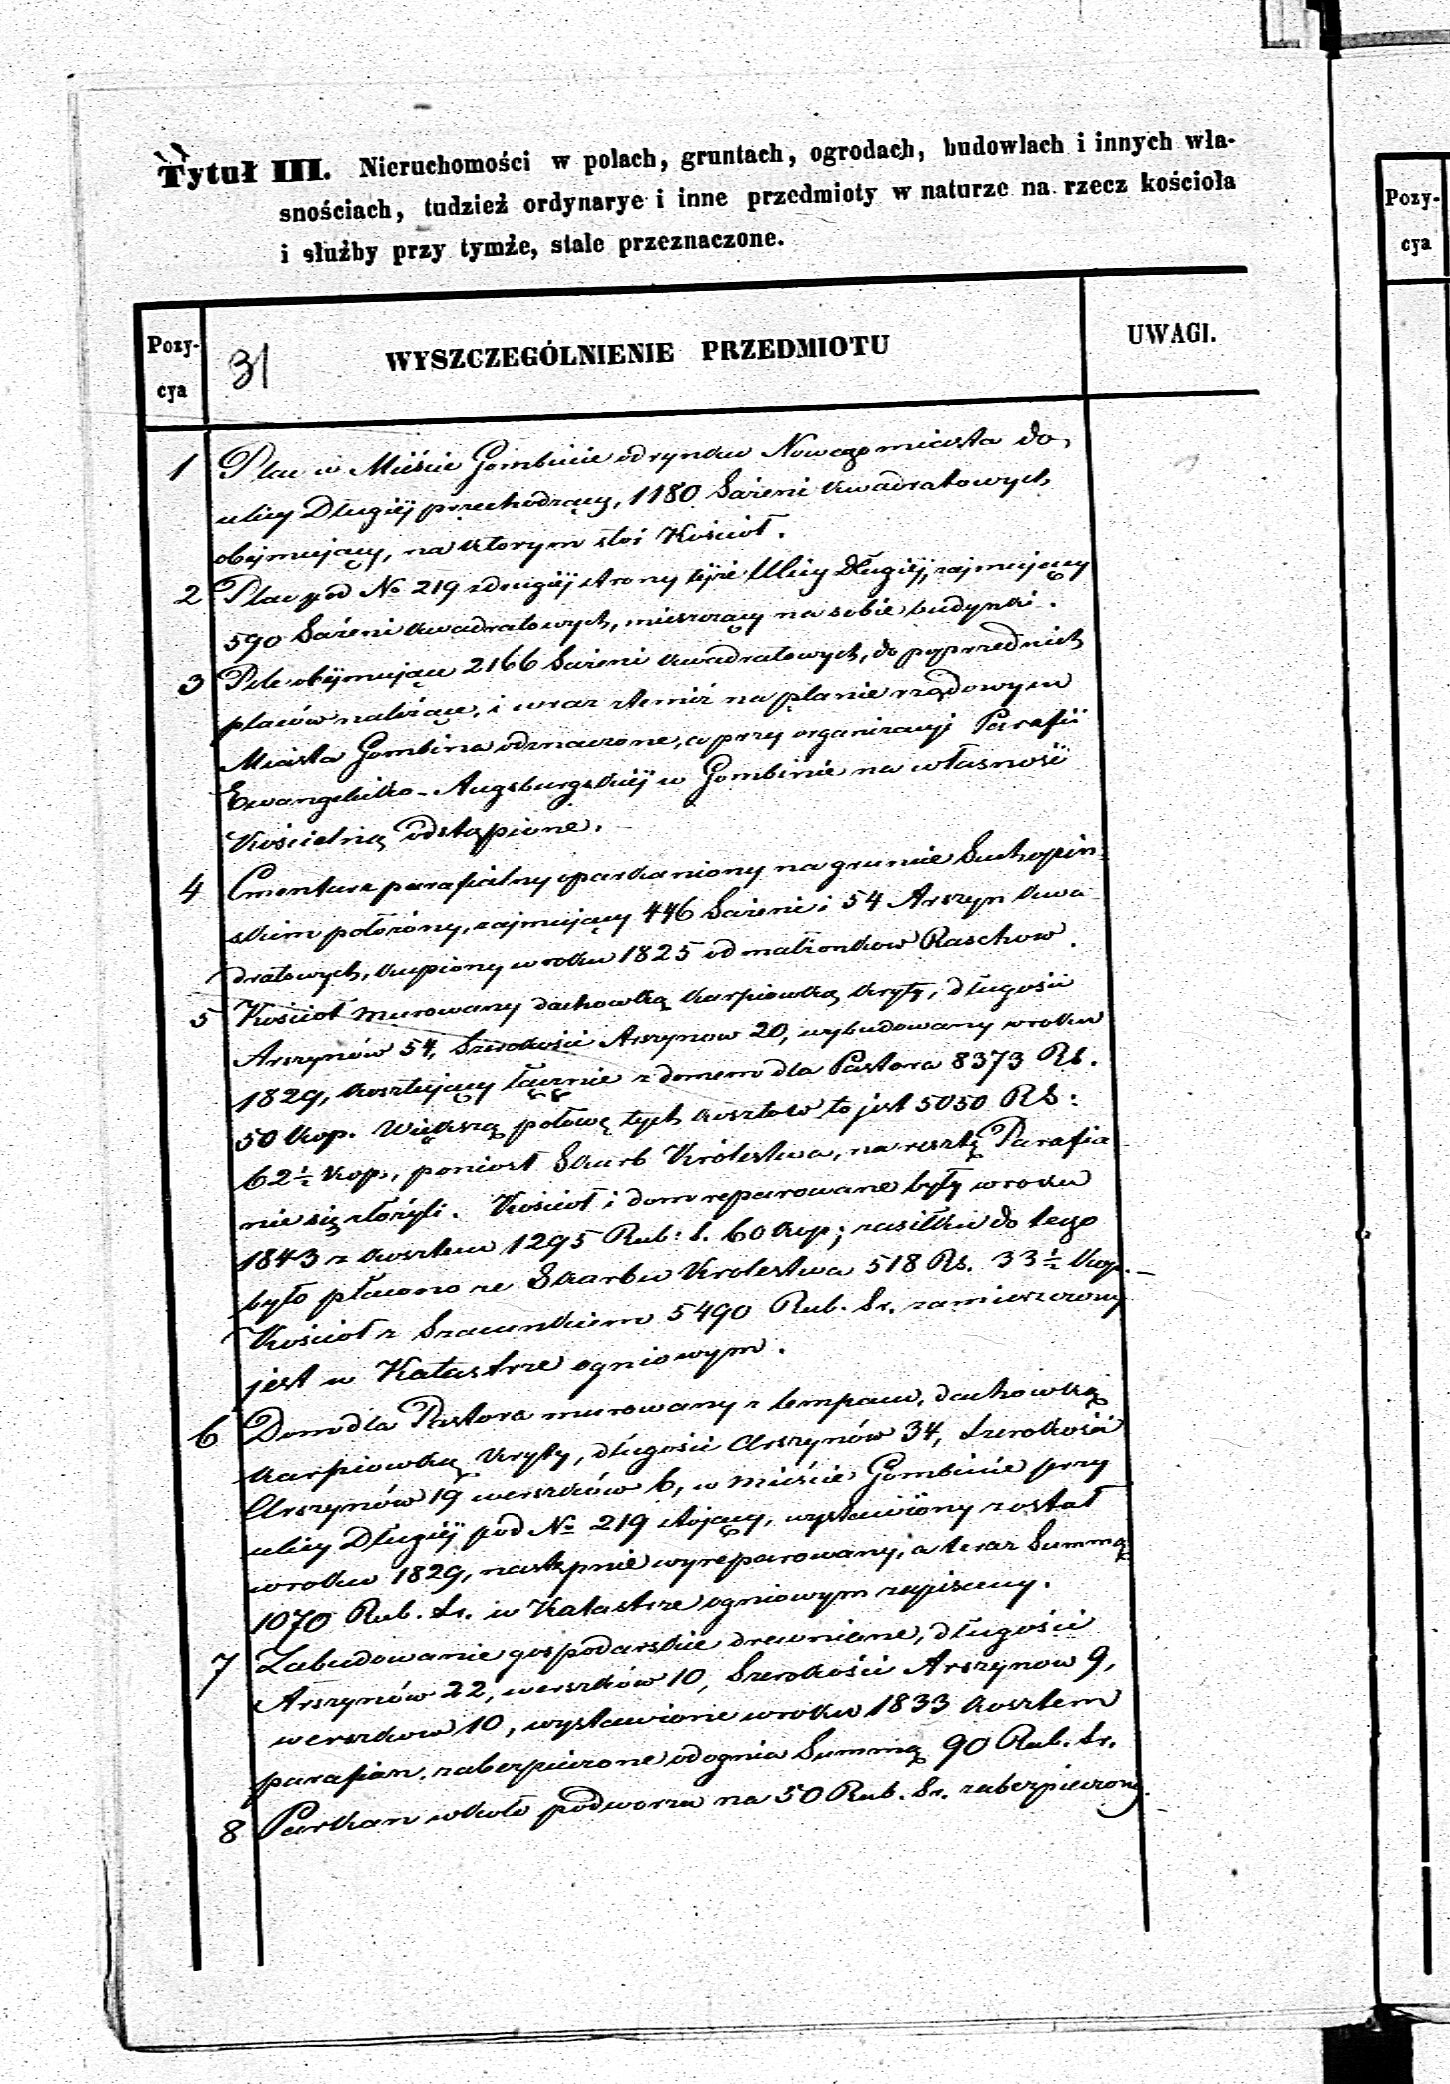 Tytuł III. Nieruchomości w polach, gruntach, ogrodach, budowlach i innych wła-
snościach, tudzież ordynarye i inne przedmioty w naturze na rzecz kościoła
i służby przy tymże, stale przeznaczone.
Pozy-
cya
31
WYSZCZEGÓLNIENIE PRZEDMIOTU
UWAGI.
Pozy-
cya
1 Plac w Mieście Gombinie od rynku Nowego miasta do
ulicy Długiéj przechodzący, 1180 Sażeni kwadratowych
obejmujący, na ktorym stoi Kościoł.
2 Plac pod No 219 z drugiéj strony téjże Ulicy Długiéj, zajmujący
590 Sażeni kwadratowych, mieszczący na sobie budynki.
3 Pole obéjmujące 2166 Sażeni kwadratowych, do poprzednich
placów należące, i wraz z temiż na planie rządowym
Miasta Gombina oznaczone, a przy organizacyi Parafii
Ewangelicko-Augsburgskiéj w Gombinie na własność
Kościelną odstąpione.
4 Cmentarz parafialny oparkaniony na gruncie Suchopin-
skim położóny, zajmujący 446 Sażeni i 54 Arszyn kwa-
dratowych, kupiony w roku 1825 od małżonkow Raschow.
5 Kościoł murowany dachowką karpiowką kryty, długości
Arszynów 54, Szerokości Arszynow 20, wybudowany w roku
1829, kosztujący łącznie z domem dla Pastora 8373 RS.
50 kop. Większą połowę tych kosztow to jest 5050 RS:
62½ kop, poniosł Skarb Królestwa, na resztę Parafia-
nie się złożyli. Kościoł i dom reparowane były w roku
1843 z kosztem 1295 Rub: S. 60 kop; zasiłku do tego
było płacono ze Skarbu Krolestwa 518 Rs. 33½ kop.
Kościoł z Szacunkiem 5490 Rub. Sr. zamieszczony
jest w Katastrze ogniowym.
6 Dom dla Pastora murowany z lempacu, dachowką
karpiowką kryty, długości Arszynów 34, Szerokości
Arszynów 19 werszków 6, w mieście Gombinie przy
ulicy Długiéj pod No 219 stojący, wystawiony został
w roku 1829, nastepnie wyreparowany, a teraz Summą
1070 Rub. Sr. w Katastrze ogniowym zapisany.
7 Zabudowanie gospodarskie drewniane, długości
Arszynów 22, werszków 10, Szerokości Arszynow 9,
werszkow 10, wystawione w roku 1833 kosztem
parafian, zabezpieczone od ognia Summą 90 Rub. Sr.
8 Parkan wkoło podworza na 50 Rub. Sr. zabezpieczony.